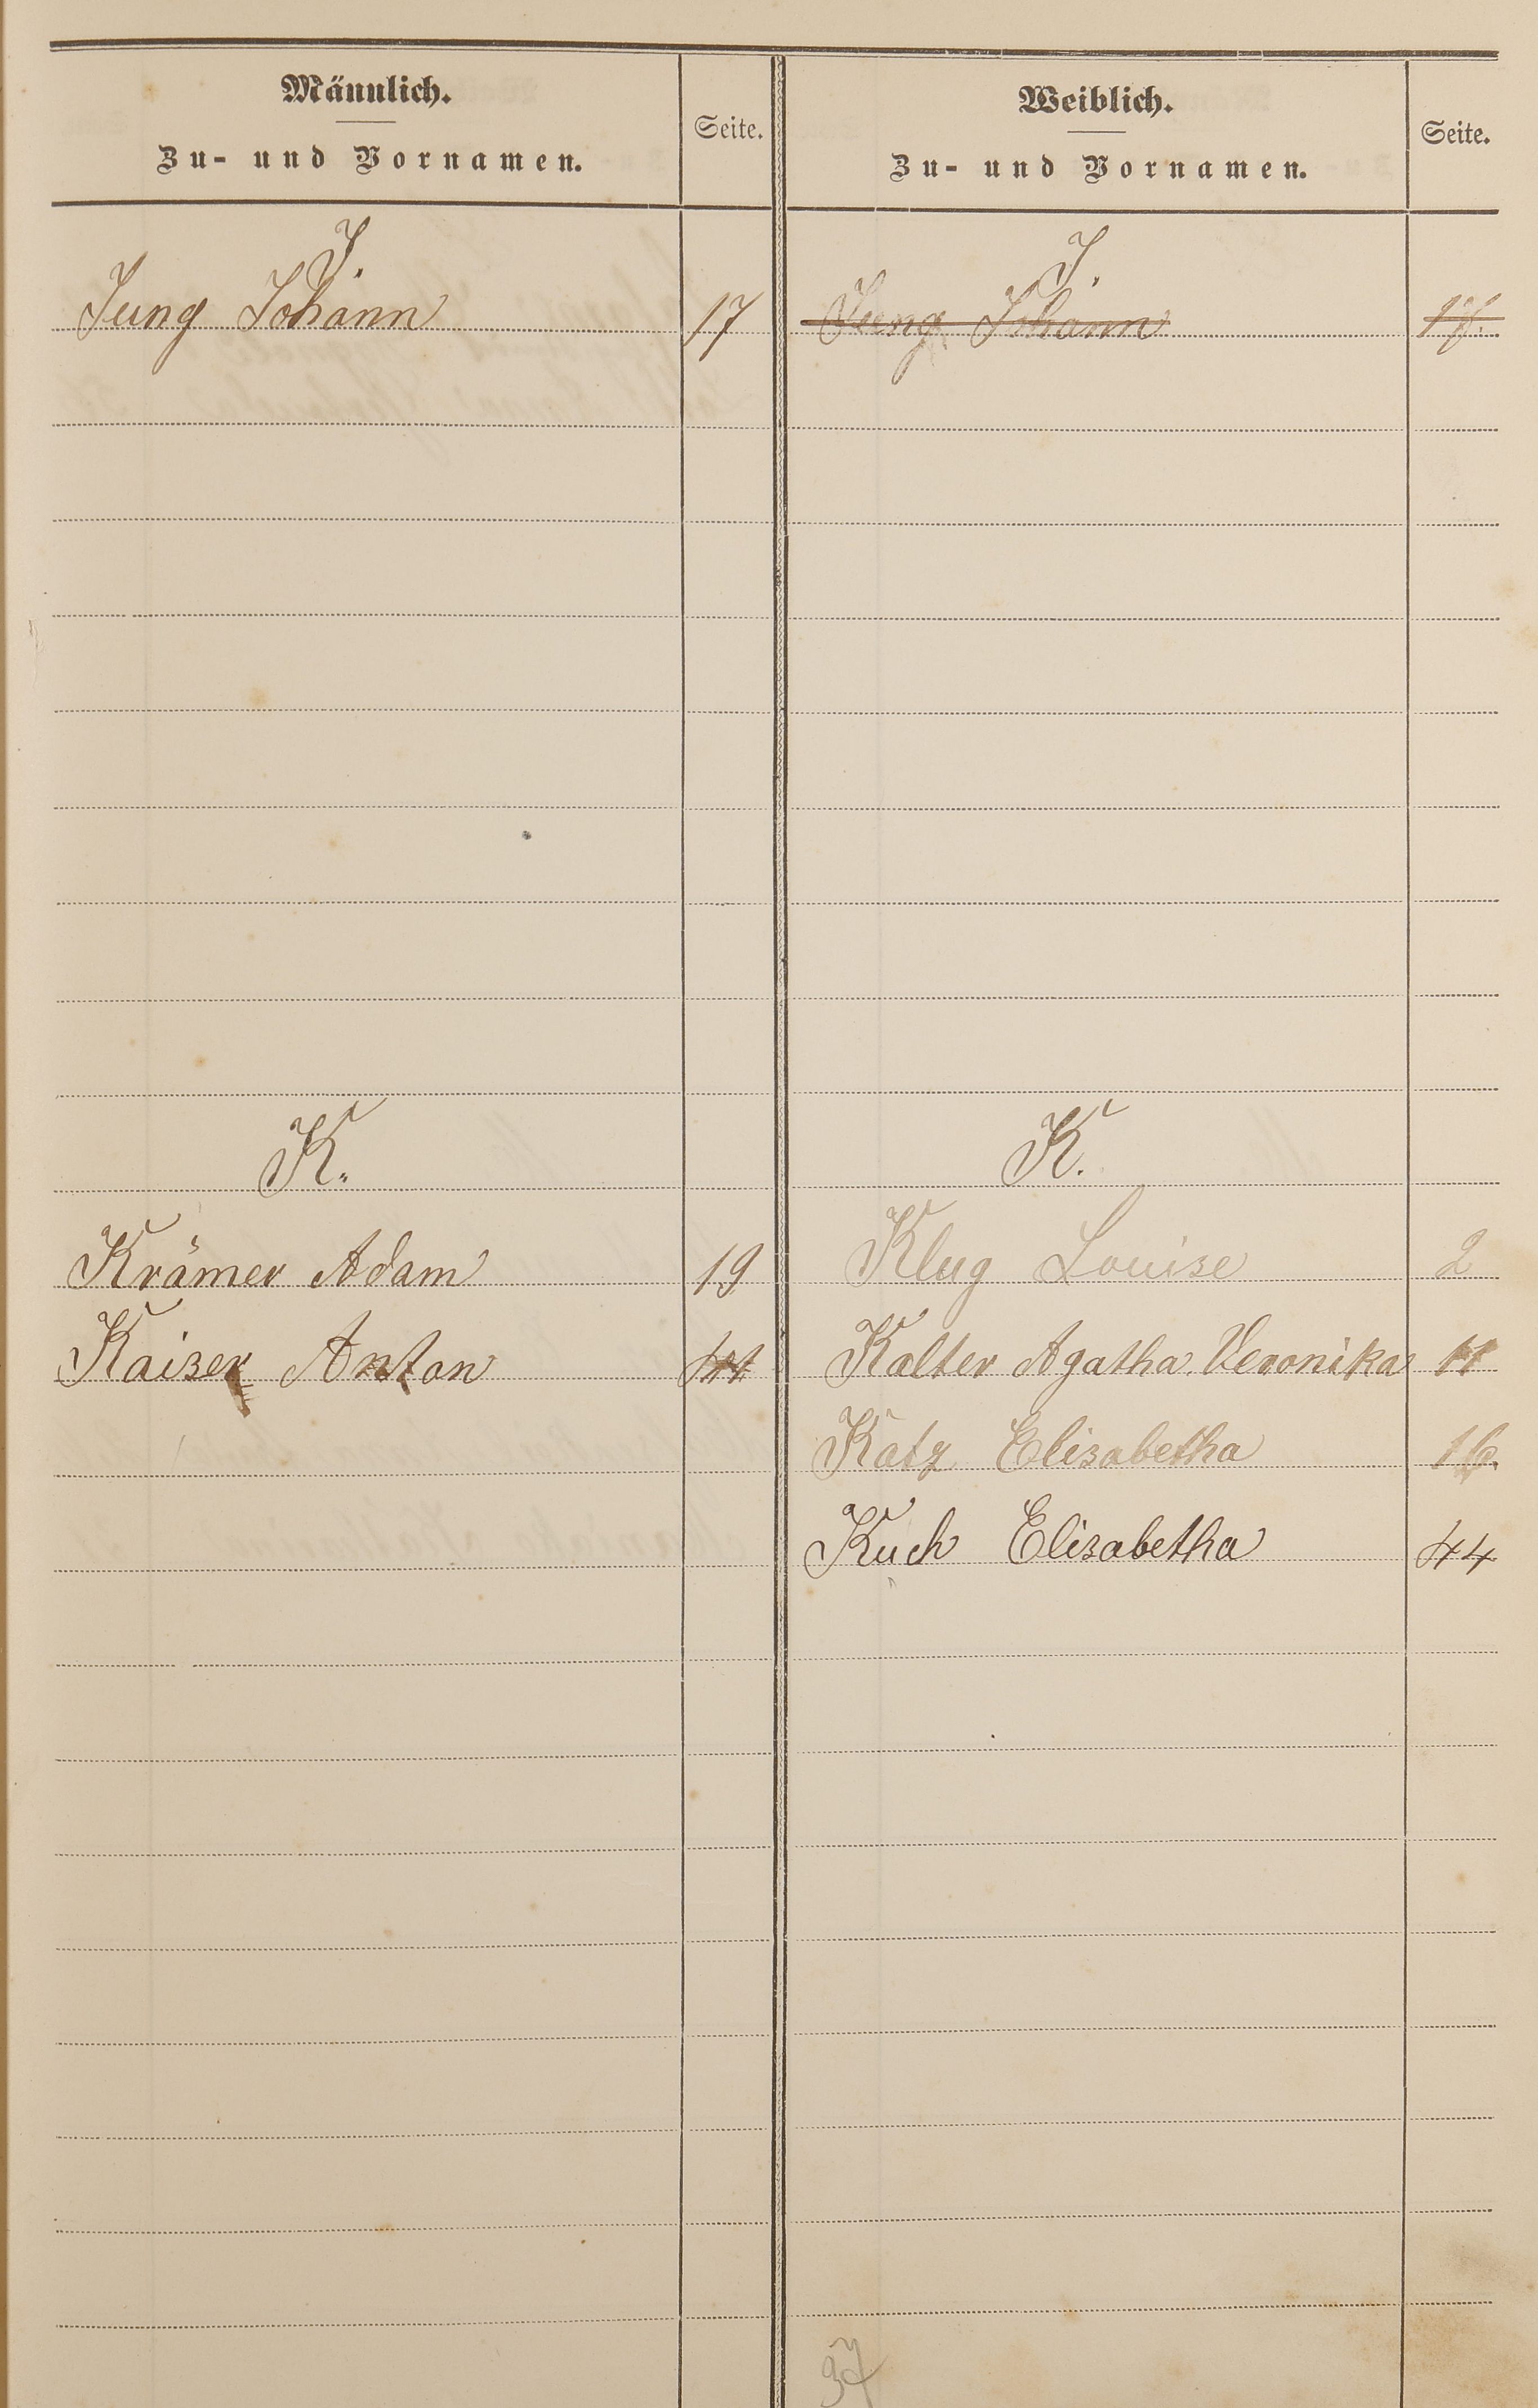 Männlich.
Zu- und Vornamen.
Seite.
Weiblich.
Zu- und Vornamen.
Seite.
J.
Jung Johann 17
K.
Krämer Adam 19
Kaiser Anton 44
J.
Jung Johann 17.
K.
Klug Louise 2
Kalter Agatha Veronika 11
Katz Elisabetha 16.
Kuch Elisabetha 44